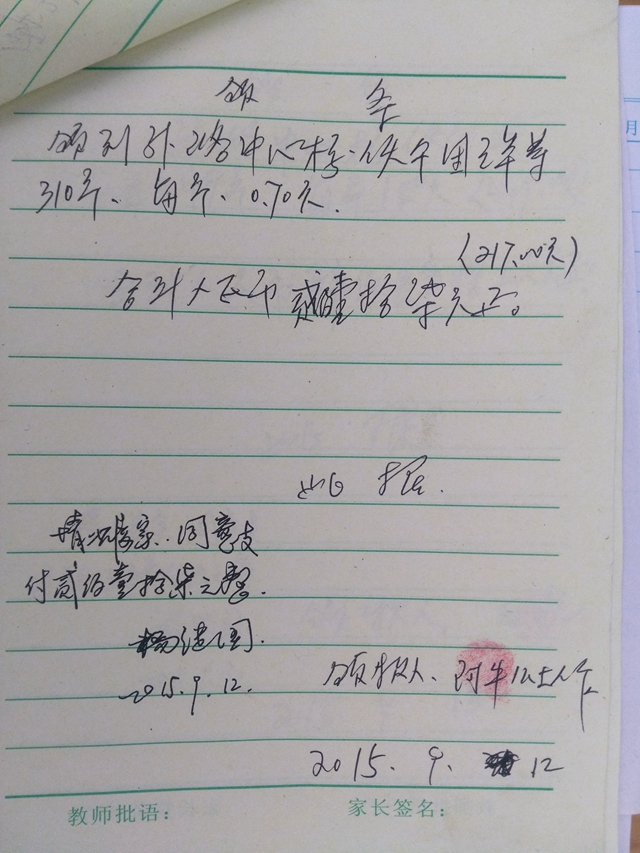 领 条
领到 中心校
310个、每个、0.70元.
(217.00元)
合计人民币 贰 壹拾柒元正。
此 据.
情况属实.同意支
付贰佰壹拾柒元整.
杨建国.
2015.9.12.
领款人、阿牛
2015.9. 12
教师批语：
家长签名：
月